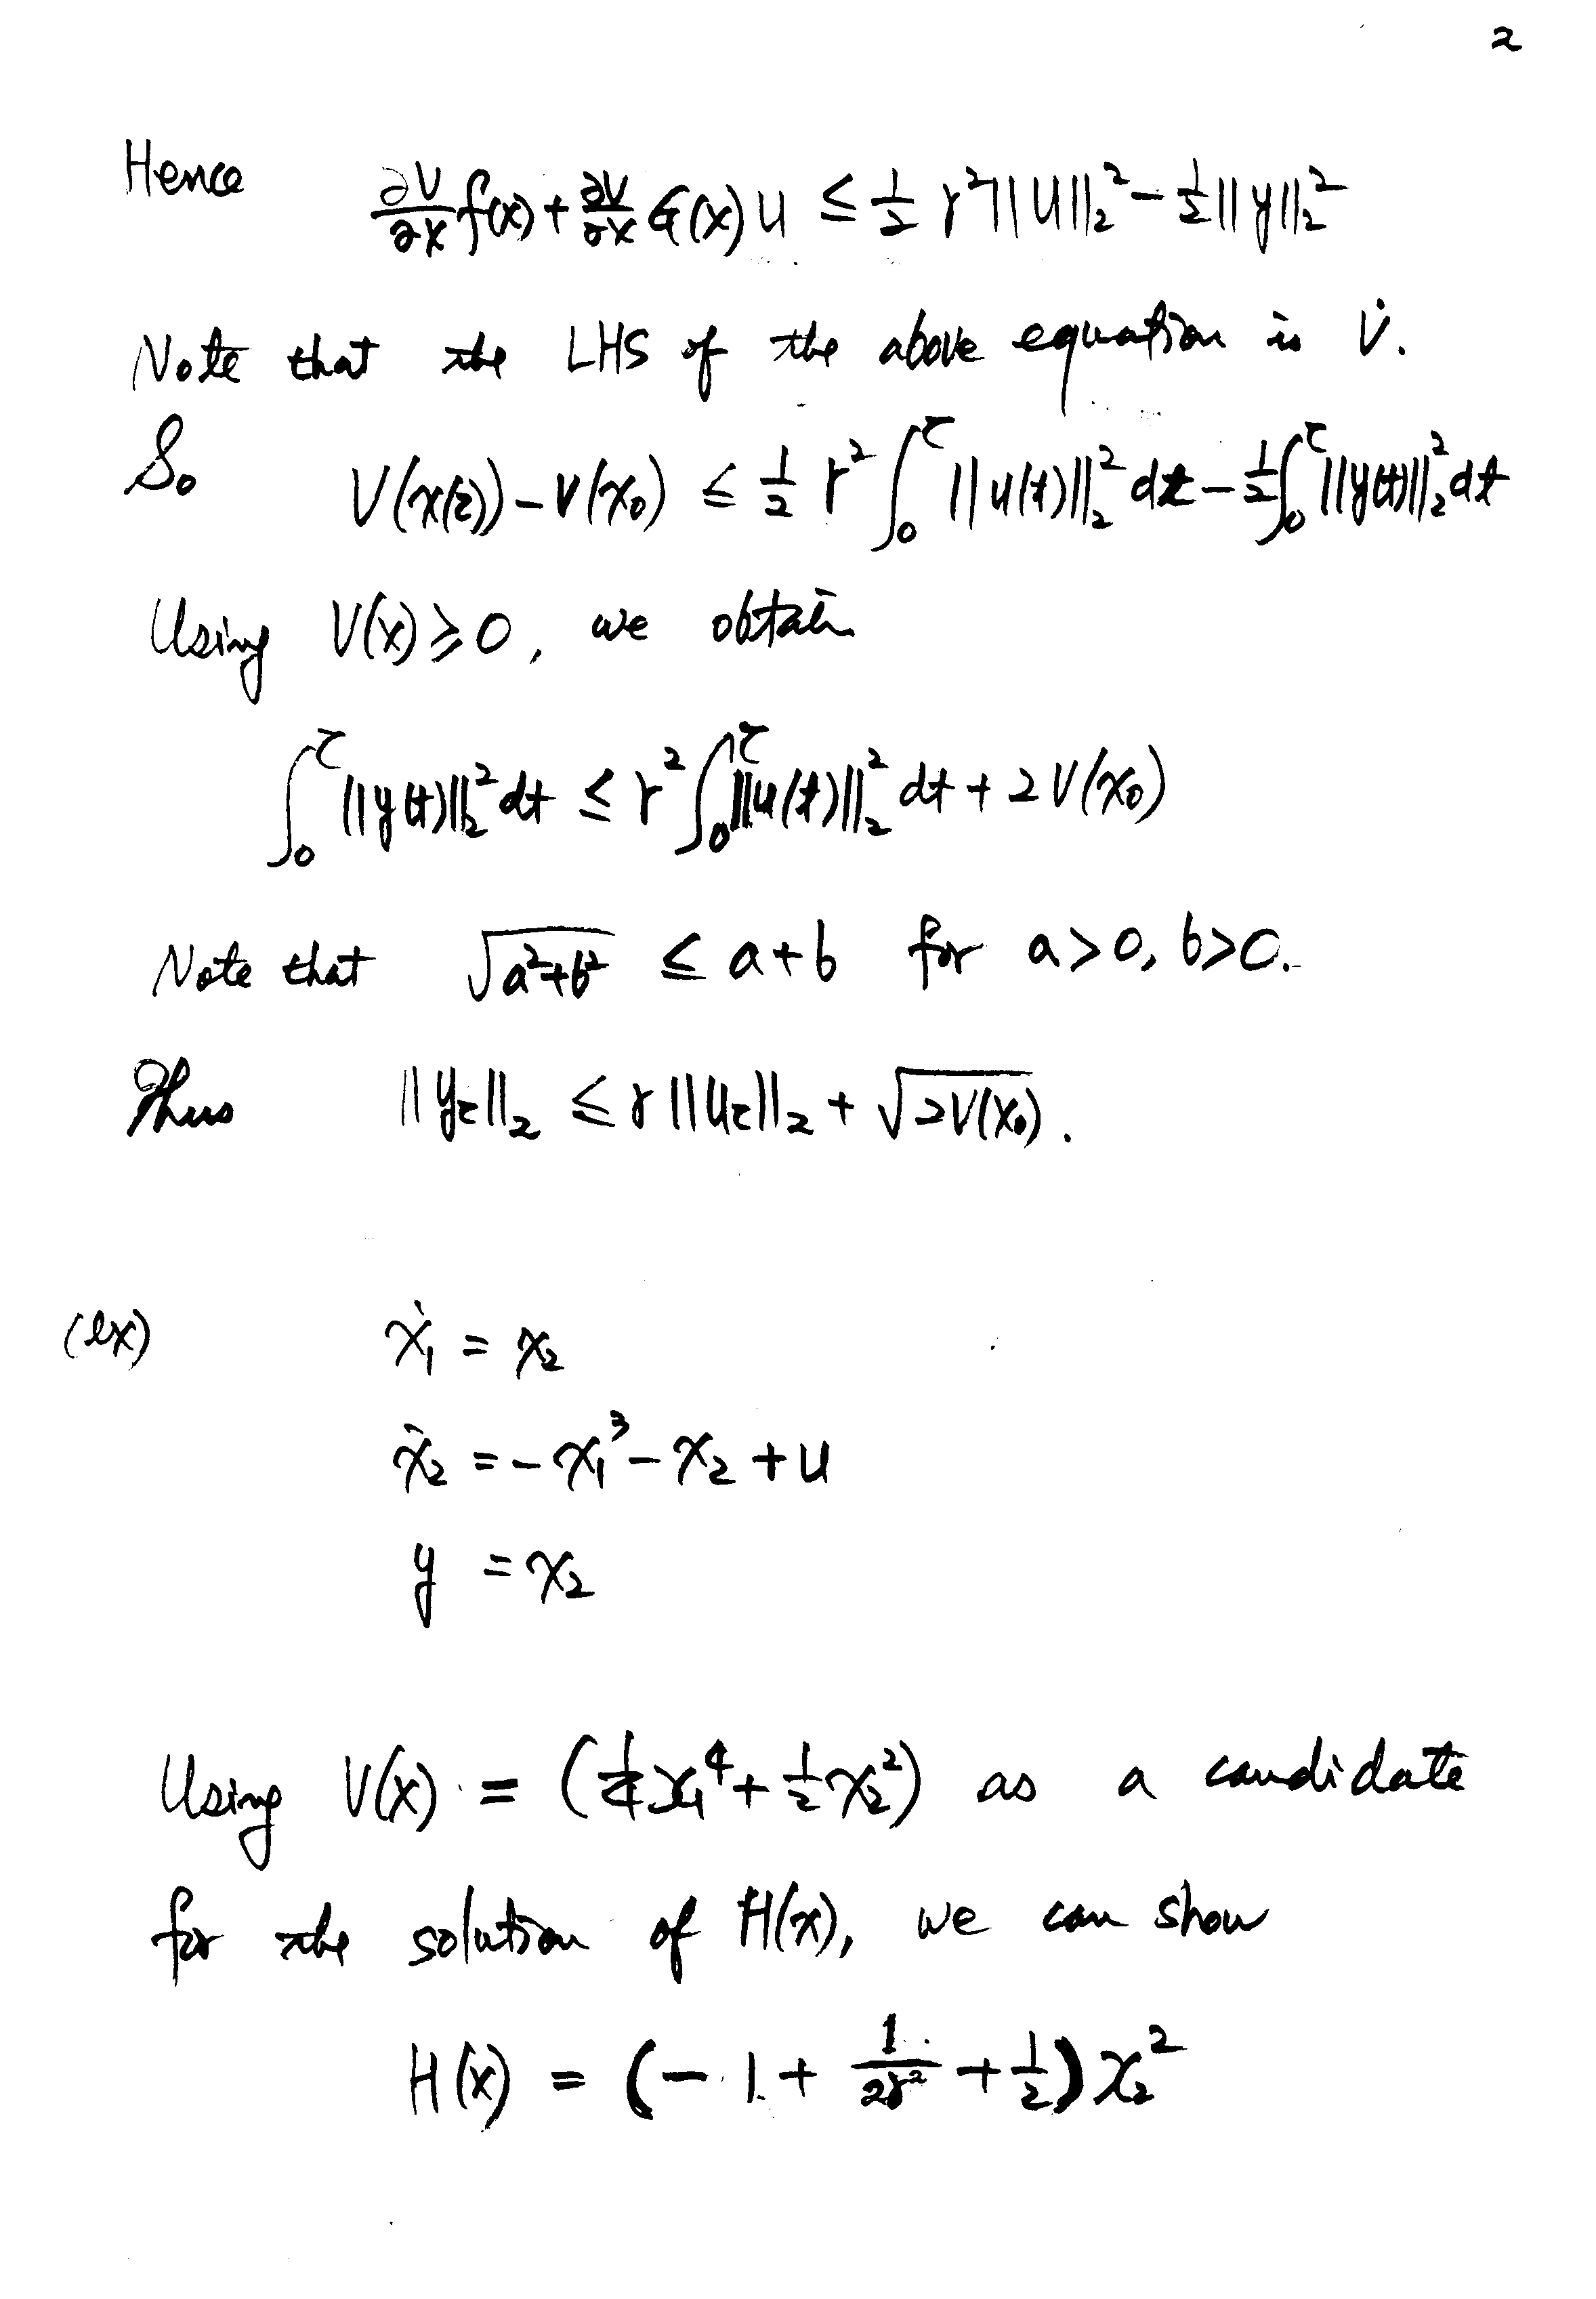 2
Hence ∂V/∂x f(x) + ∂V/∂x G(x) u ≤ 1/2 γ² ||u||₂² − 1/2 ||y||₂²
Note that the LHS of the above equation is V̇.
So V(x(τ)) − V(x₀) ≤ 1/2 γ² ∫₀^τ ||u(t)||₂² dt − 1/2 ∫₀^τ ||y(t)||₂² dt
Using V(x) ≥ 0, we obtain
∫₀^τ ||y(t)||₂² dt ≤ γ² ∫₀^τ ||u(t)||₂² dt + 2V(x₀)
Note that √(a²+b²) ≤ a+b for a>0, b>0.
Thus ||y_τ||₂ ≤ γ ||u_τ||₂ + √(2V(x₀)).
(ex) ẋ₁ = x₂
ẋ₂ = −x₁³ − x₂ + u
y = x₂
Using V(x) = (1/4 x₁⁴ + 1/2 x₂²) as a candidate
for the solution of H(x), we can show
H(x) = (−1 + 1/(2γ²) + 1/2) x₂²